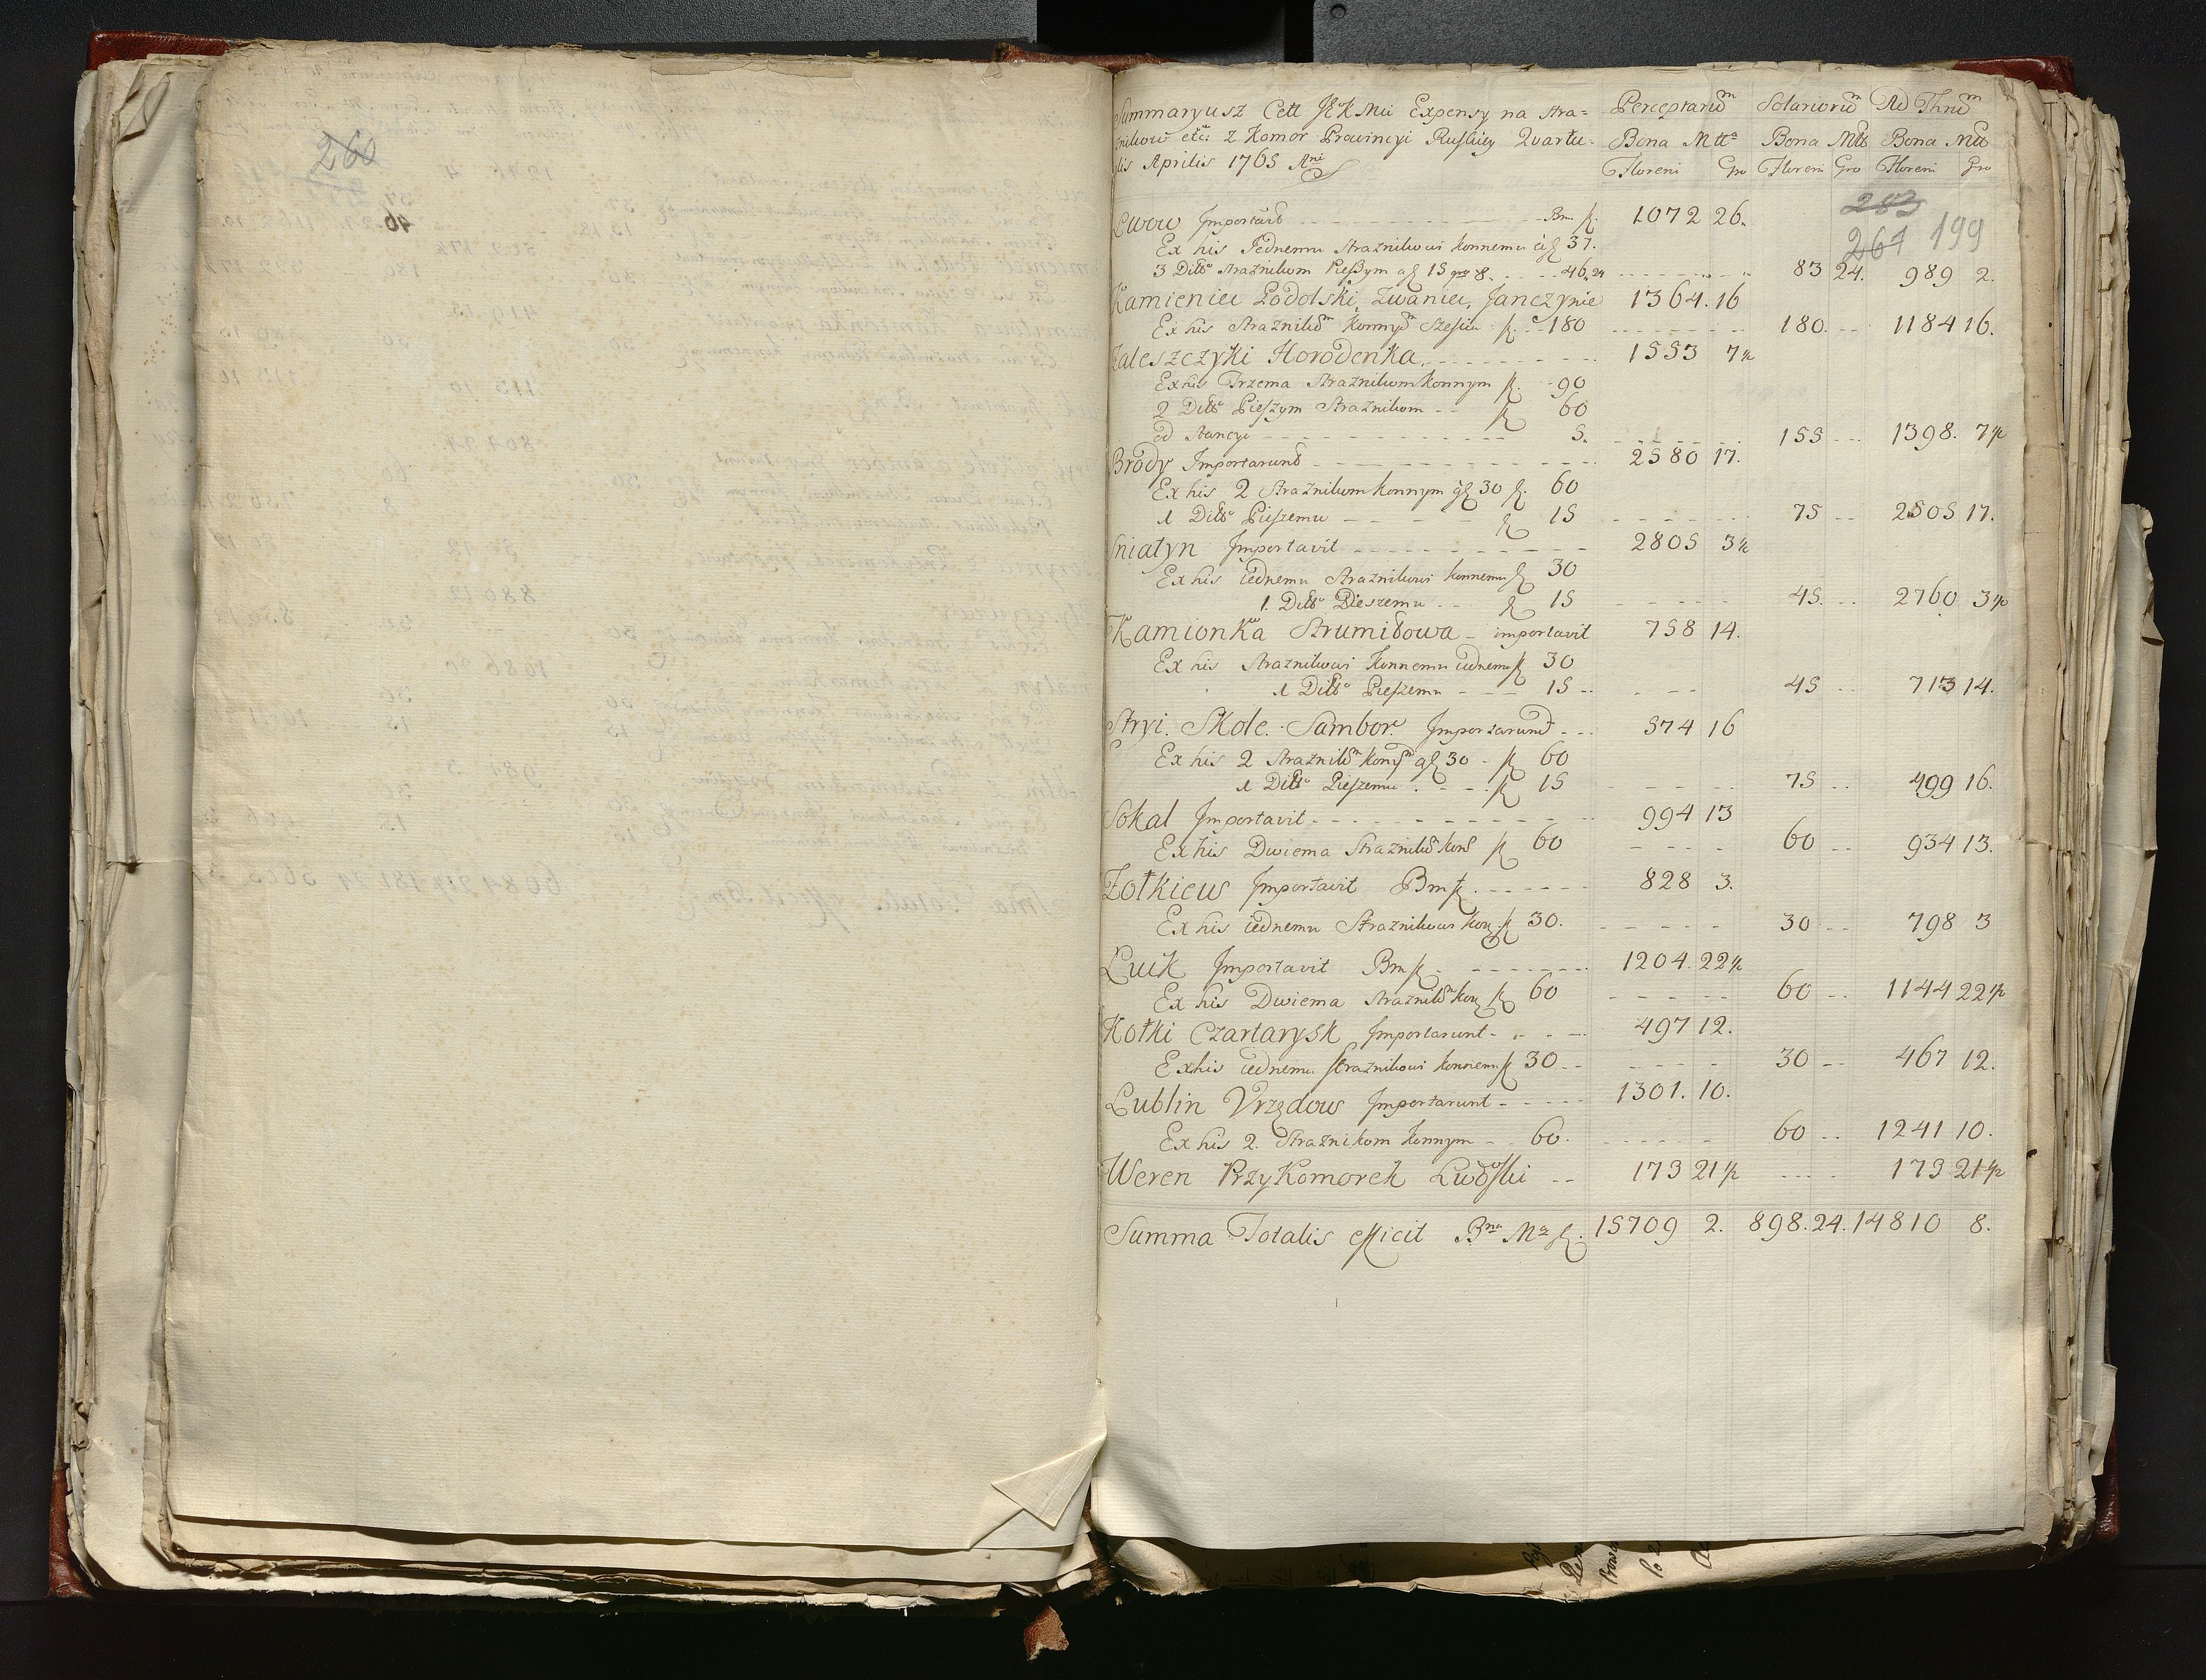 260
46
Summaryusz Cell Expensy na Stra=
żnikow etc: z Komor Prowincyi Ruskiey Quartu-
lis Aprilis 1765 Ani
Perceptarum Solariorum Ad Thrum
Bona Mtta Bona Mtta Bona Mtta
Floreni Gro Floreni Gro Floreni Gro
283
264 199
Lwow Importavit Bm f. 1072 26.
Ex his Jednemu Strażnikowi konnemu 37.
3 Ditto Strażnikom Pieszym a f 15 gr 8. 46.24 83 24. 989 2.
Kamieniec Podolski, Zwaniec, Janczynie 1364. 16
Ex his Strażnikom Konnym Sześciu f. 180 180. 1184 16.
Zaleszczyki Horodenka 1553 7½
Ex his Trzema Strażnikom konnym f. 90
2 Ditto Pieszym Strażnikom f 60
od Stancyi 5. 155 1398. 7½
Brody Importarunt 2580 17.
Ex his 2 Strażnikom konnym a f 30 f. 60
1 Ditto Pieszemu f 15 75 2505 17.
Sniatyn Importavit 2805 3½
Ex his iednemu Strażnikowi konnemu f 30
1. Ditto Pieszemu f 15 45. 2760 3½
Kamionka Strumiłowa importavit 758 14.
Ex his Strażnikowi Konnemu iednemu f 30
1 Ditto Pieszemu 15 45 713 14.
Stryi. Skole. Sambor. Importarunt 574 16
Ex his 2 Strażnikom konnym a f 30 f 60
1 Ditto Pieszemu f 15 75 499 16.
Sokal Importavit 994 13
Ex his Dwiema Strażnikom kon f 60 60 934 13.
Zołkiew Importavit Bm f. 828 3.
Ex his iednemu Strażnikowi kon f 30. 30 798 3
Łuck Importavit Bm f 1204. 22½
Ex his Dwiema Strażnikom kon f 60 60 1144 22½
Kołki Czartarysk Importarunt 497 12.
Ex his iednemu strażnikowi konnemu f 30 30 467 12.
Lublin Vrzędow Importarunt 1301. 10.
Ex his 2. Strażnikom konnym 60. 60 1241 10.
Weren PrzyKomorek 173 21½ 173 21½
Summa Totalis efficit Bna Ma f. 15709 2. 898. 24. 14810 8.